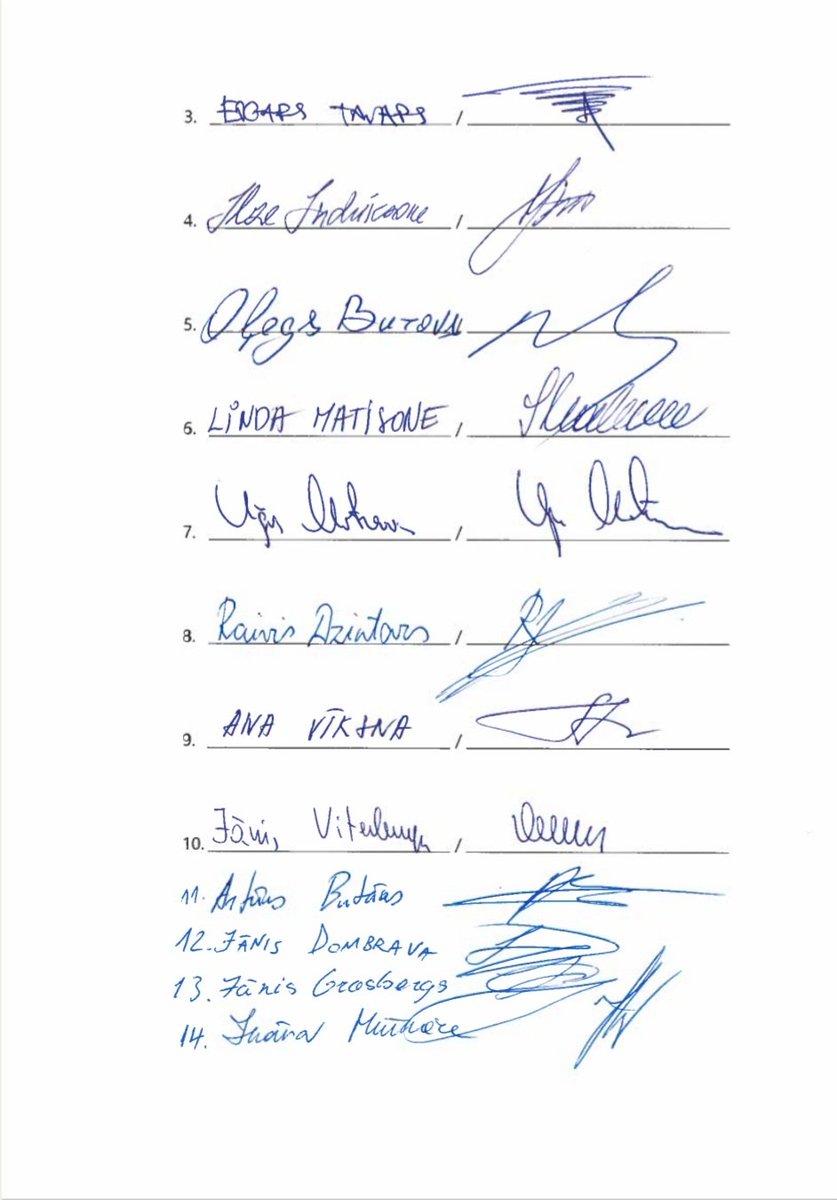 3. EDGARS TAVARS /
4. Ilze Indriksone /
5. Oļegs Burovs /
6. LINDA MATISONE /
7. Uģis /
8. Raivis Dzintars /
9. ANA VĪKSNA /
10. Jānis Vitenbergs /
11. Artūrs Butāns
12. JĀNIS DOMBRAVA
13. Jānis Grasbergs
14. Ināra Mūrniece